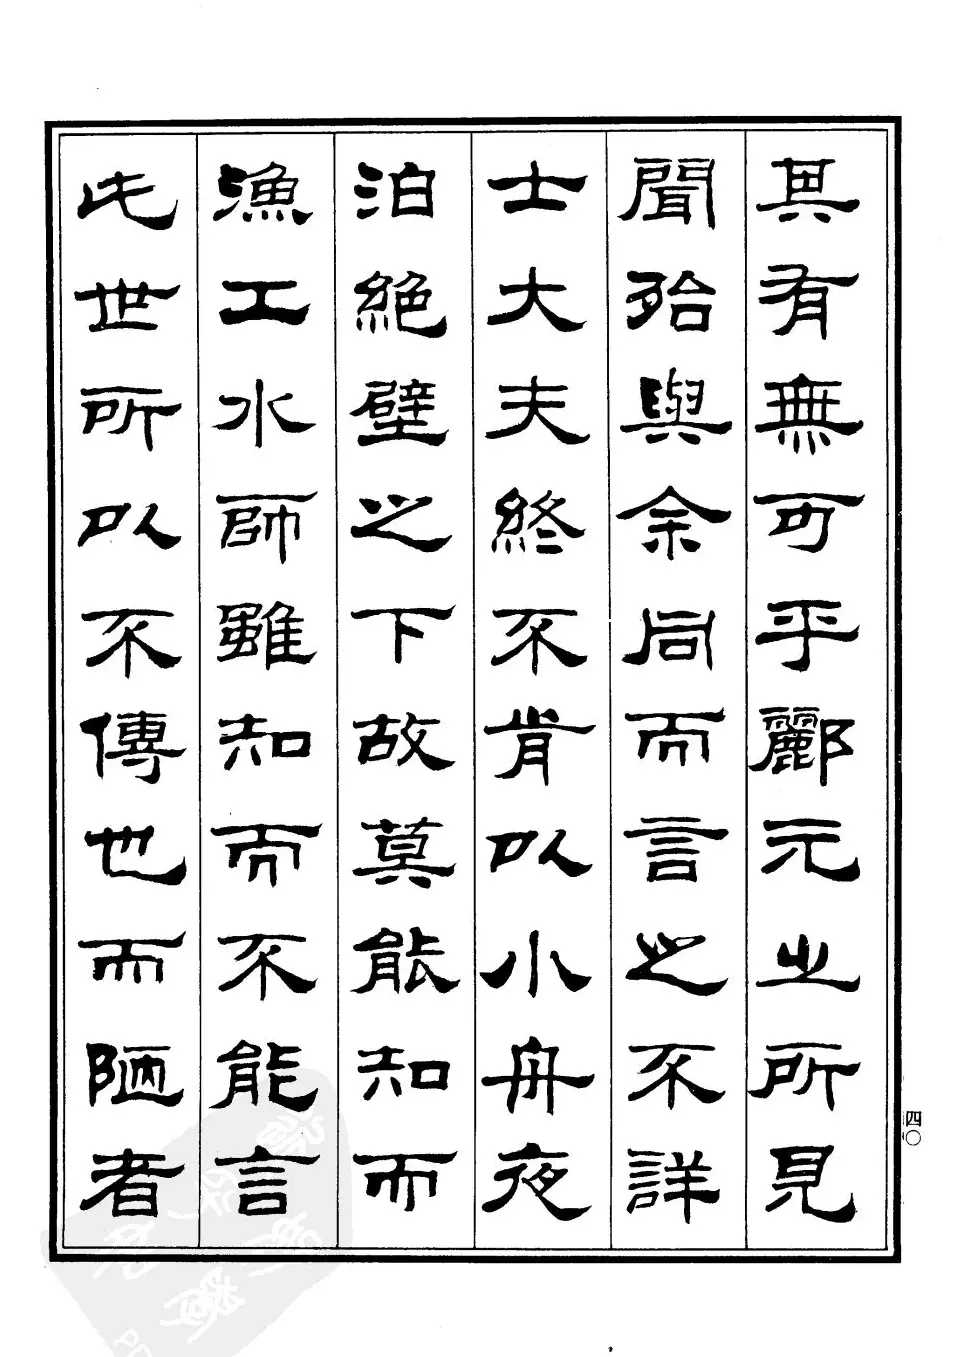 其有無可乎酈元之所見
聞殆與余同而言之不詳
士大夫終不肯以小舟夜
泊絕壁之下故莫能知而
漁工水師雖知而不能言
此世所以不傳也而陋者
四〇